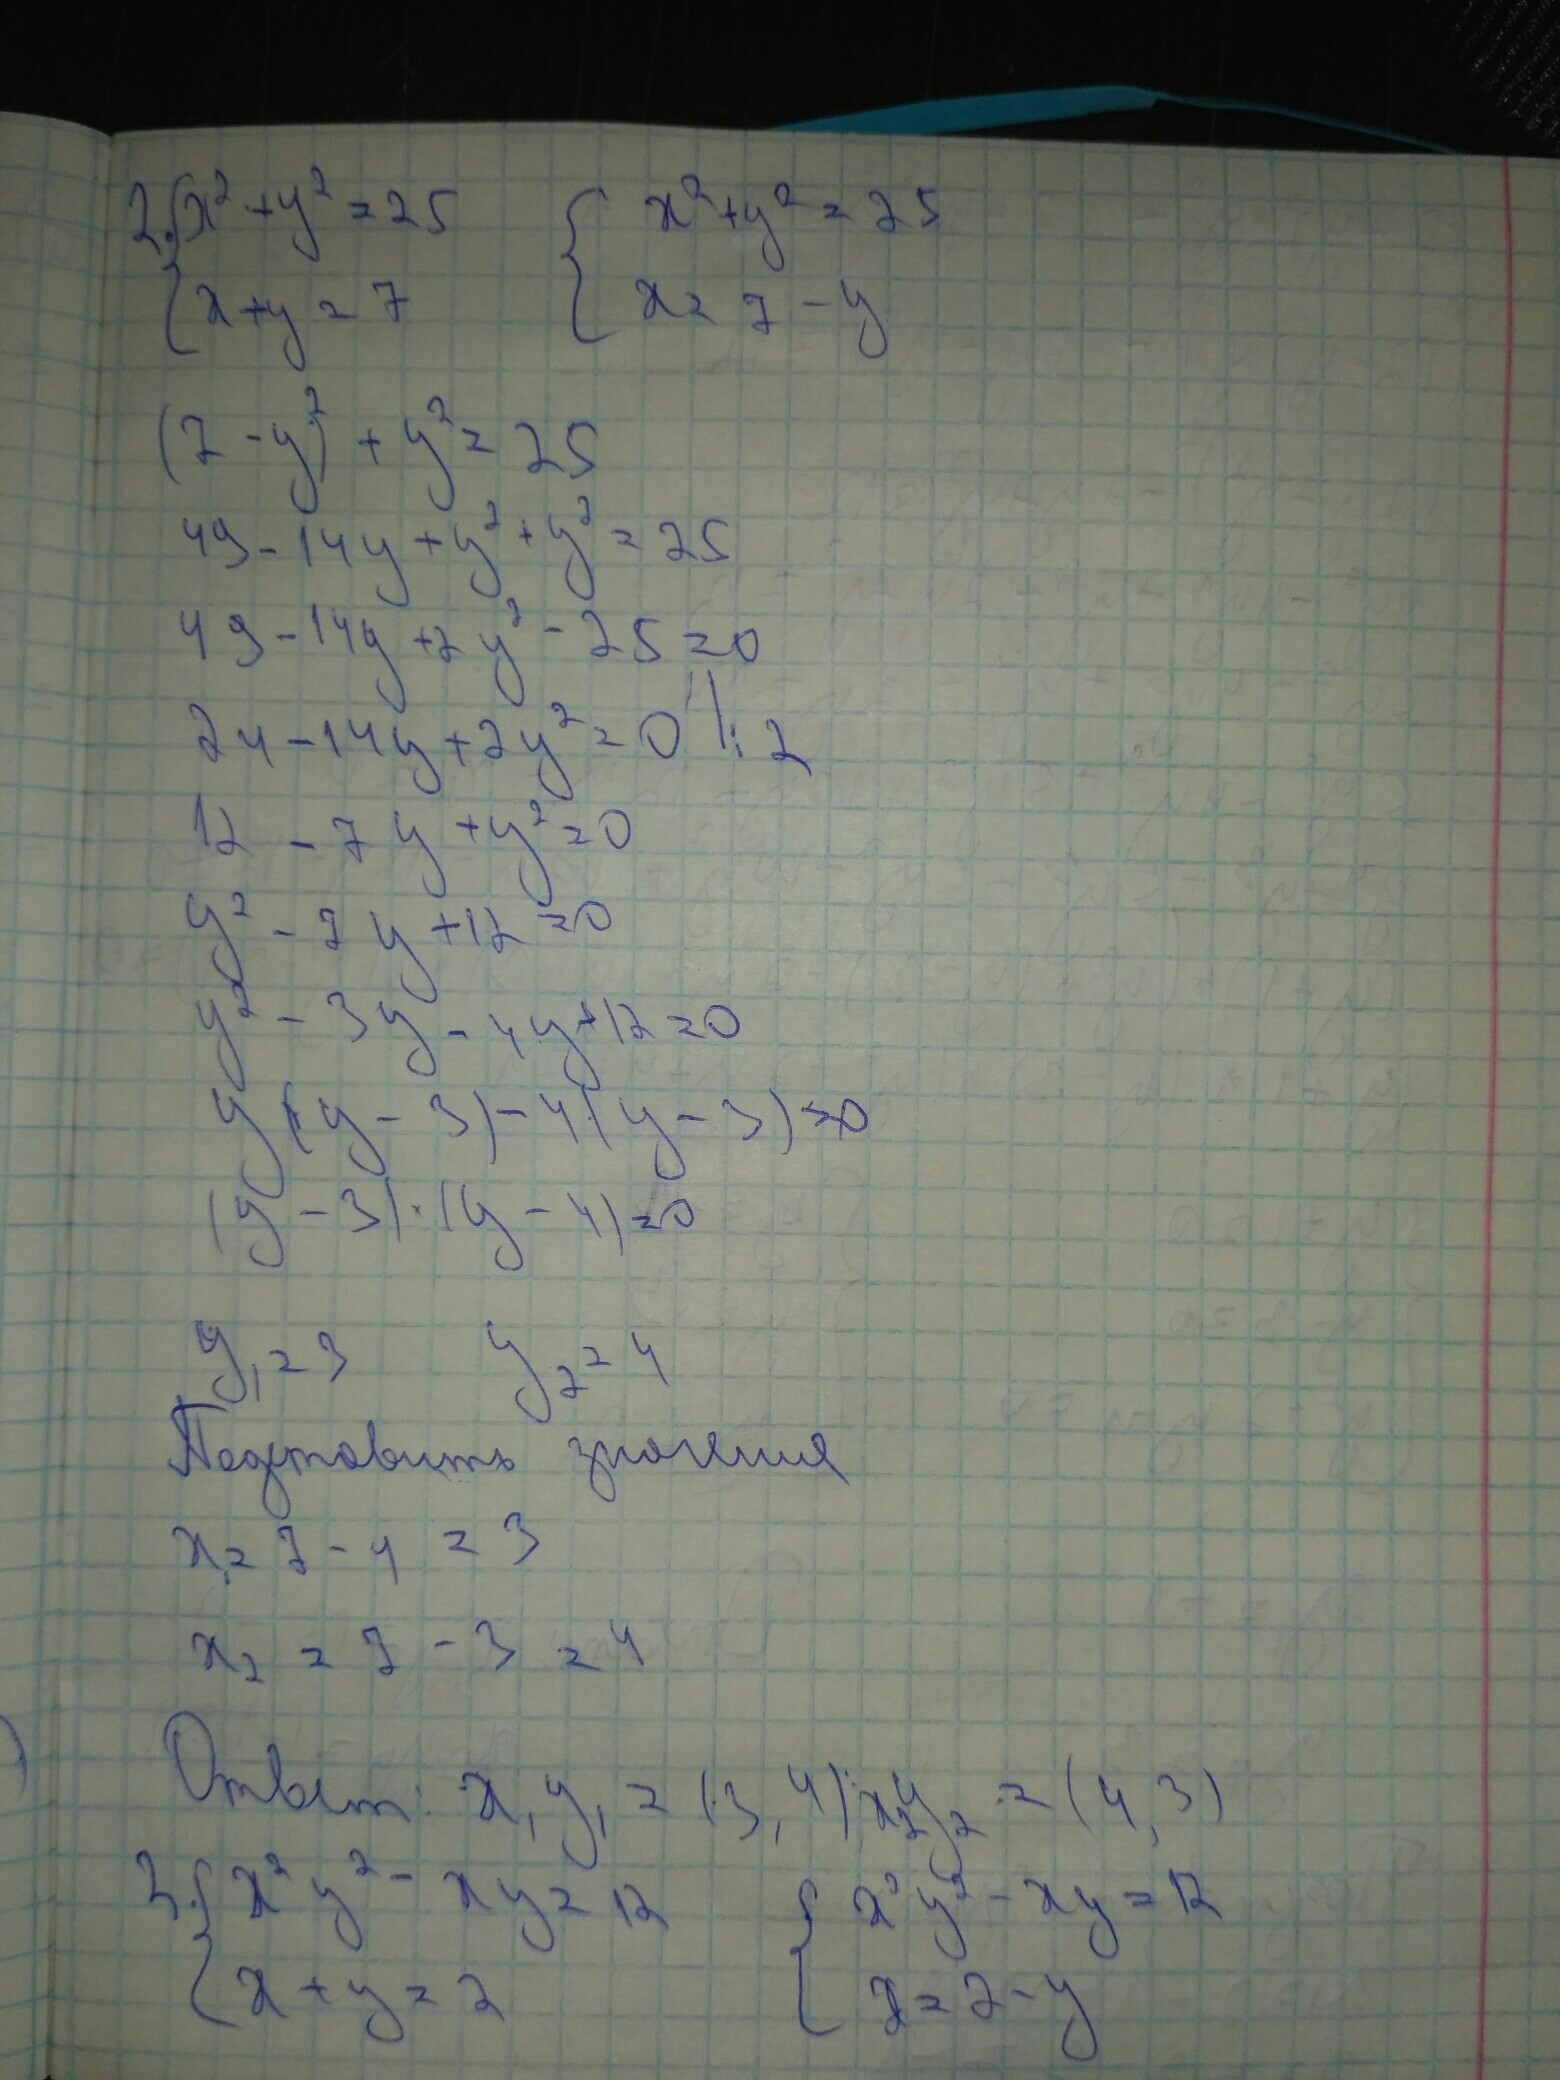 2. { x² + y² = 25 { x² + y² = 25
x + y = 7 x = 7 - y
(7 - y)² + y² = 25
49 - 14y + y² + y² = 25
49 - 14y + 2y² - 25 = 0
24 - 14y + 2y² = 0 | : 2
12 - 7y + y² = 0
y² - 7y + 12 = 0
y² - 3y - 4y + 12 = 0
y (y - 3) - 4 (y - 3) = 0
(y - 3) · (y - 4) = 0
y₁ = 3 y₂ = 4
Подставить значения
x = 7 - 4 = 3
x₂ = 7 - 3 = 4
Ответ: x₁y₁ = (3, 4); x₂y₂ = (4, 3)
3. { x² y² - xy = 12 { x² y² - xy = 12
x + y = 2 x = 2 - y